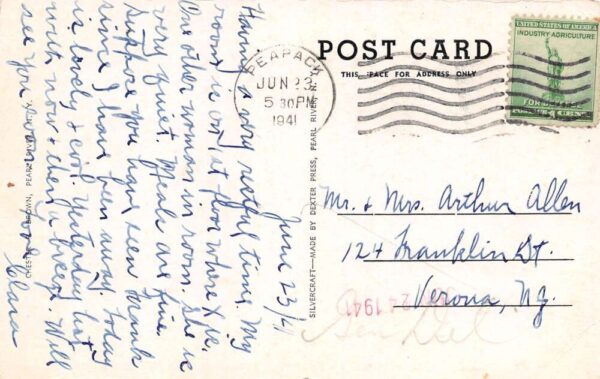 POST CARD
THIS SPACE FOR ADDRESS ONLY
PEAPACK
JUN 23
5 30 PM
1941
UNITED STATES OF AMERICA
INDUSTRY·AGRICULTURE
FOR DEFENSE
1 CENT
June 23/41
Having a very restful time. My
room is on 1st floor where X is.
One other woman in room. She is
very quiet. Meals are fine.
Suppose you have seen Frank
since I have been away. Today
is lovely & cool. Yesterday hot
with now & then a breeze. Will
see you soon. Love
Clara
BROWN, PEARL RIVER, N.Y.
SILVERCRAFT—MADE BY DEXTER PRESS, PEARL RIVER, N.Y.
Mr. & Mrs. Arthur Allen
124 Franklin St.
Verona, N.J.
24 1941
Gen Del